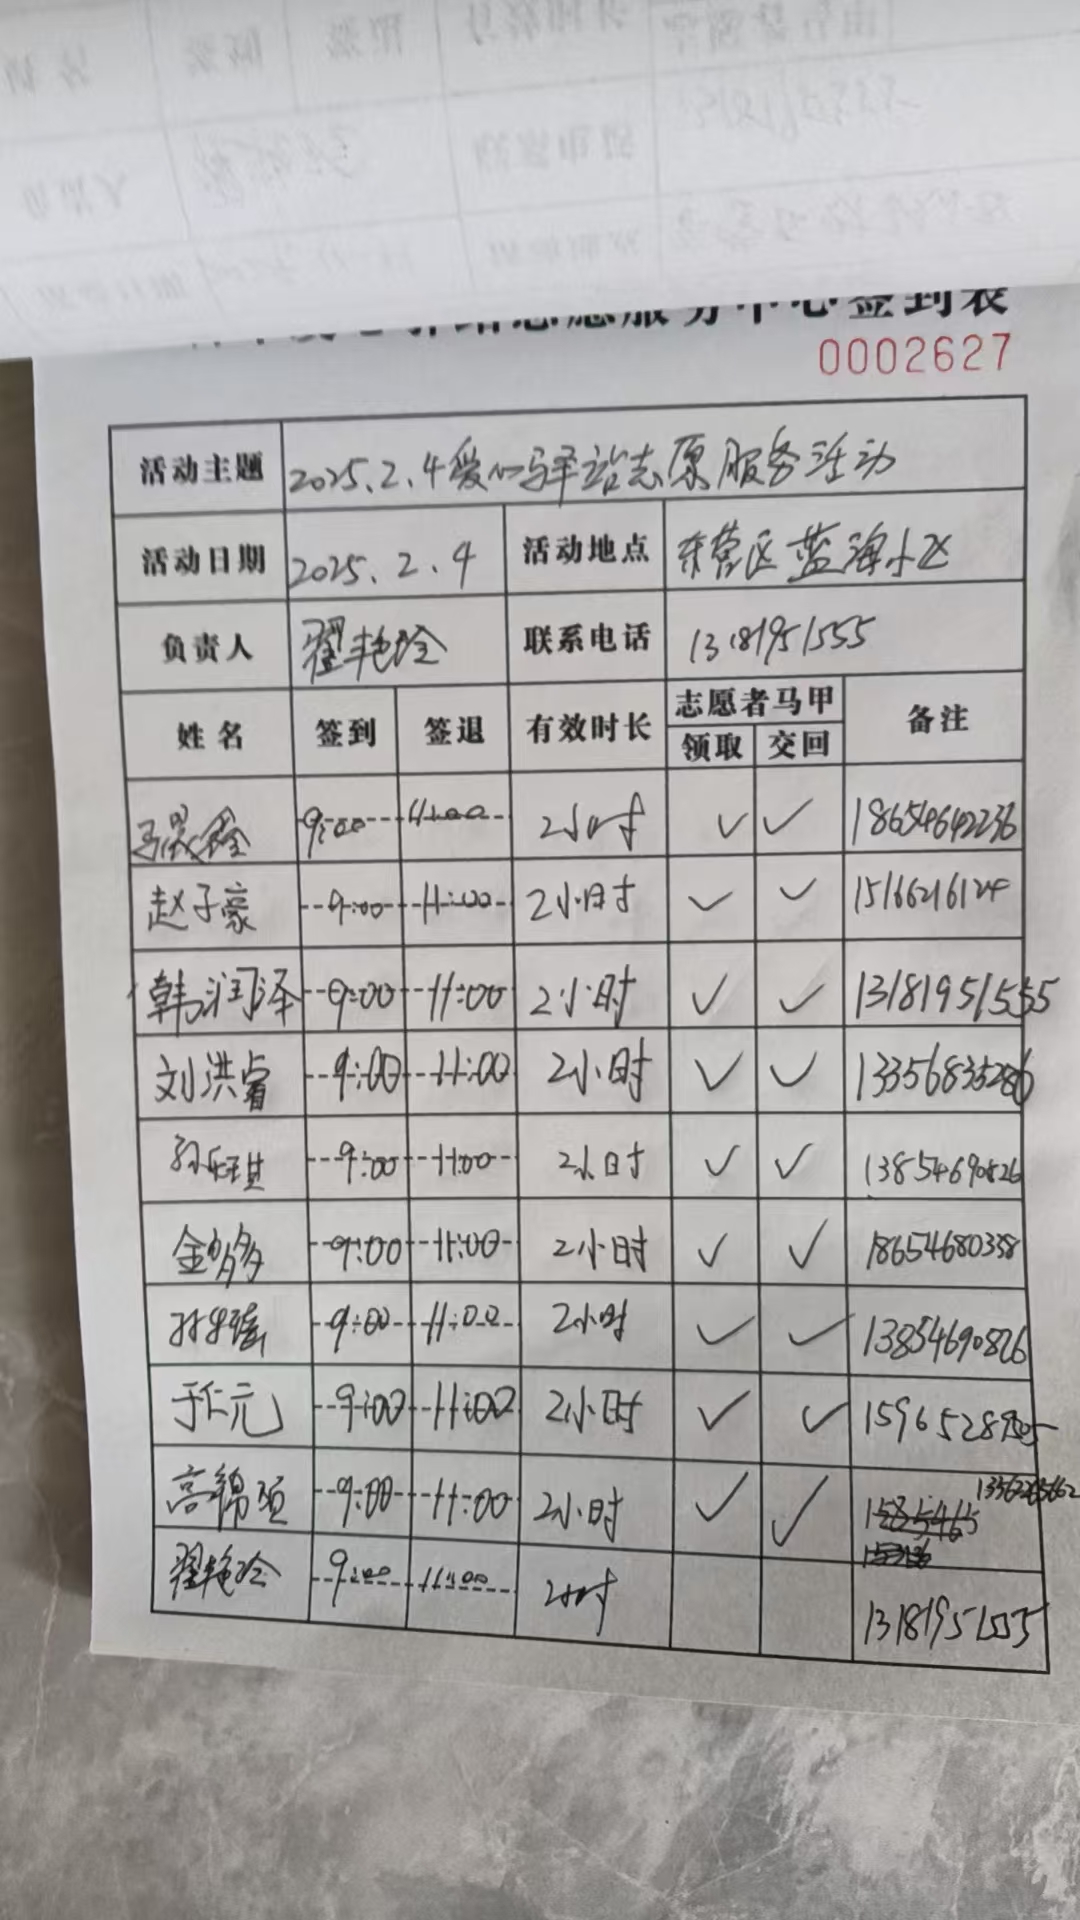 志愿服务中心签到表
0002627
活动主题 2025.2.4爱心驿站志愿服务活动
活动日期 2025.2.4 活动地点 东营区蓝海小区
负责人 翟艳玲 联系电话 13181951555
姓名 签到 签退 有效时长 志愿者马甲 备注
领取 交回
9:00 11:00 2小时 ✓ ✓ 18654642236
赵子豪 9:00 11:00 2小时 ✓ ✓ 15166216124
韩润泽 9:00 11:00 2小时 ✓ ✓ 13181951555
刘洪睿 9:00 11:00 2小时 ✓ ✓ 13356835286
9:00 11:00 2小时 ✓ ✓ 13854690826
金多多 9:00 11:00 2小时 ✓ ✓ 18654680338
9:00 11:00 2小时 ✓ ✓ 13854690826
于仁元 9:00 11:00 2小时 ✓ ✓
高锦硕 9:00 11:00 2小时 ✓ ✓
翟艳玲 9:00 11:00 2小时 13181951555